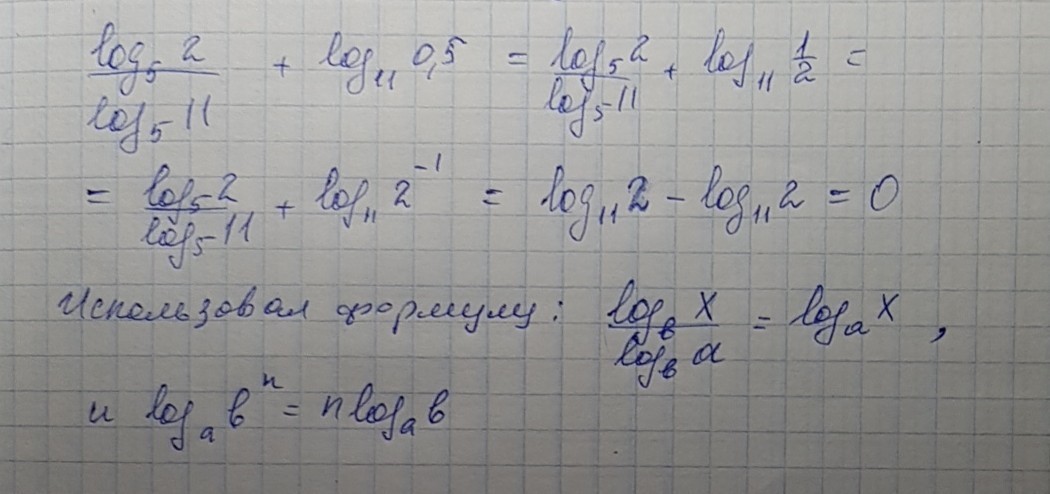 log₅ 2 / log₅ 11 + log₁₁ 0,5 = log₅ 2 / log₅ 11 + log₁₁ 1/2 =
= log₅ 2 / log₅ 11 + log₁₁ 2⁻¹ = log₁₁ 2 - log₁₁ 2 = 0
Использовал формулу: log_в x / log_в a = log_a x ,
и log_a вⁿ = n log_a в